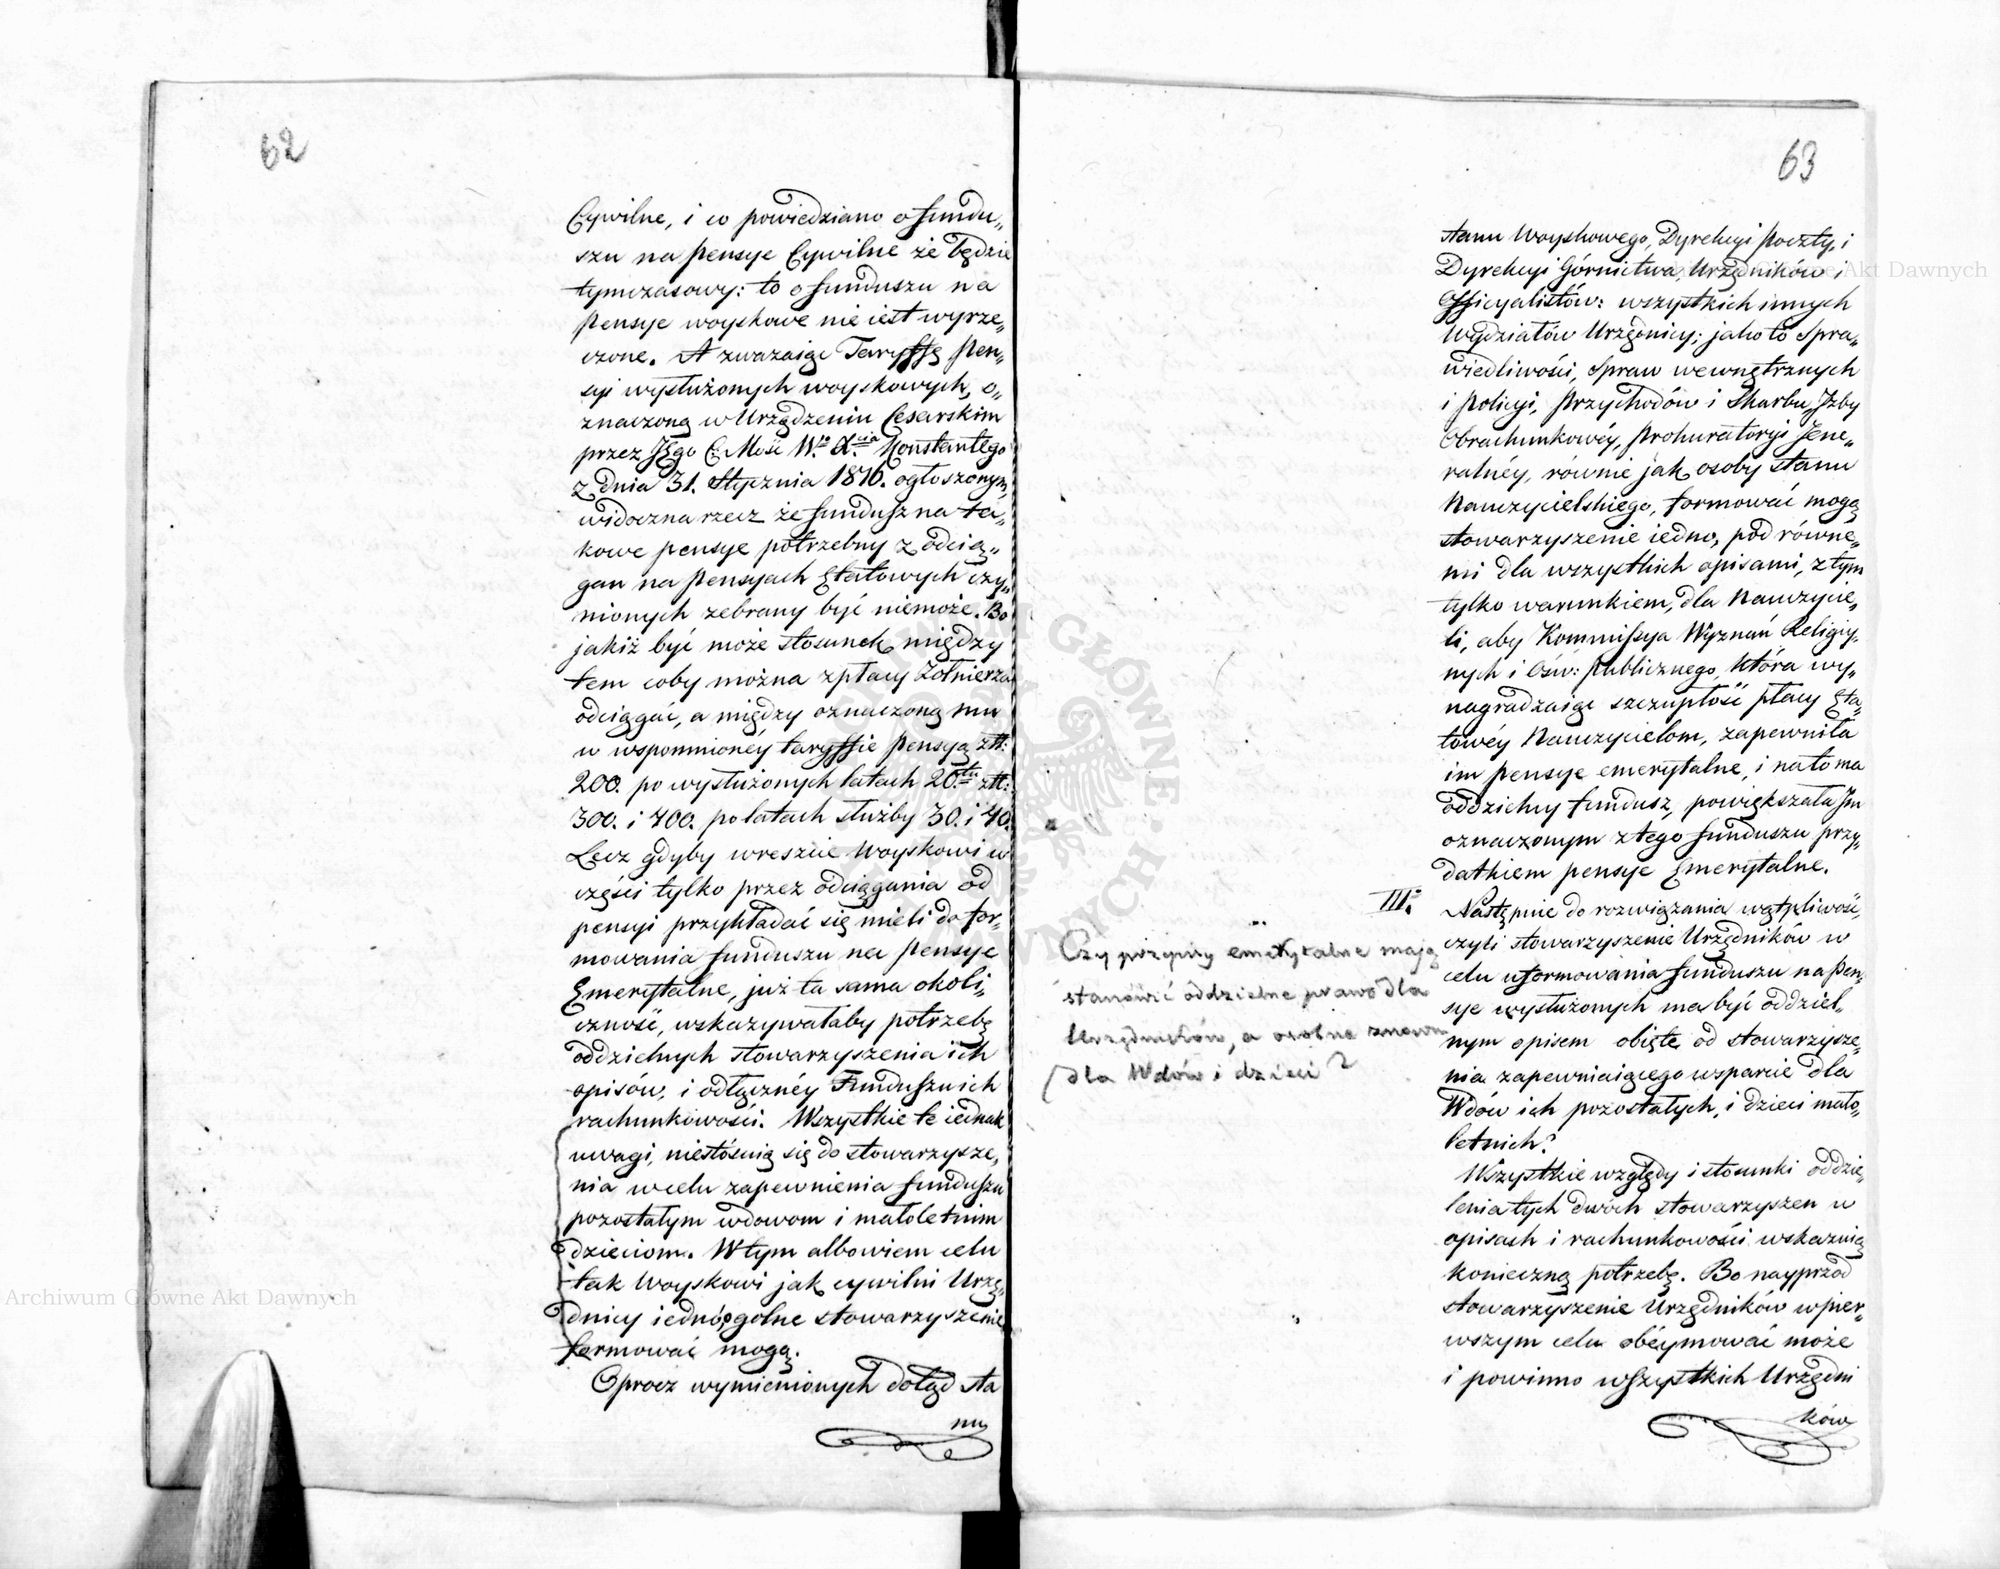 62
Cywilne, i co powiedziano o fundu„
szu na pensye Cywilne że będzie
tymczasowy: to o funduszu na
pensye woyskowe nie iest wyrze„
czone. A zwazaiąc Taryffę Pen„
syi wysłużonych woyskowych, o„
znaczoną w Urządzeniu Cesarskim
przez Jego C. Mość W.º X.cia Konstantego
z dnia 31. Stycznia 1816. ogłoszonym,
widoczna rzecz że fundusz na ta„
kowe pensye potrzebny z odcią„
gan na Pensyach Etatowych czy„
nionych zebrany być niemoże. Bo
jakiż być może stosunek między
tem coby można z płacy Żołnierza
odciągać, a między oznaczoną mu
w wspomnioney taryffie pensyą złł:
200. po wysłużonych latach 20.stu złł:
300. i 400. po latach służby 30. i 40.
Lecz gdyby wreszcie Woyskowi w
części tylko przez odciągania od
pensyi przykładać się mieli do for„
mowania funduszu na Pensye
Emerytalne, już ta sama okoli„
czność, wskazywałaby potrzebę
oddzielnych stowarzyszenia ich
opisów, i odłącznéy Funduszu ich
rachunkowości. Wszystkie te iednak
uwagi, niestósuią się do stowarzysze„
nia w celu zapewnienia funduszu
pozostałym wdowom i małoletnim
dzieciom. W tym albowiem celu
tak Woyskowi jak cywilni Urzę„
dnicy iednó ogolne stowarzyszenie
formować mogą.
Oprocz wymienionych dotąd sta
nu
63
stanu Woyskowego, Dyrekcyi Poczty, i
Dyrekcyi Górnictwa, Urzędników i
Officyalistów: wszystkich innych
Wydziałów Urzędnicy; jako to Spra„
wiedliwości, Spraw wewnętrznych
i Policyi, Przychodów i Skarbu, Izby
Obrachunkowéy, Prokuratoryi Jene„
ralnéy, równie jak osoby stanu
Nauczycielskiego, formować mogą
stowarzyszenie iedno, pod równe„
mi dla wszystkich opisami, z tym
tylko warunkiem, dla Nauczycie„
li, aby Kommissya Wyznań Religiy„
nych i Ośw: Publicznego, która wy„
nagradzaiąc szczupłość płacy Eta„
towéy Nauczycielom, zapewniła
im pensye emerytalne, i na to ma
oddzielny fundusz, powiększała Im
oznaczonym z tego funduszu przy„
datkiem pensye Emerytalne.
III. Następnie do rozwiązania wątpliwość,
czyli stowarzyszenie Urzędników w
celu uformowania funduszu na pen„
sye wysłużonych ma być oddziel„
nym opisem obięte od stowarzysze„
nia zapewniaiącego wsparcie dla
Wdów ich pozostałych, i dzieci mało„
letnich?
Czy przepisy emerytalne mają
stanowić oddzielne prawo dla
Urzędników, a osobne znown
dla Wdów i dzieci?
Wszystkie względy i stosunki oddzie„
lenia tych dwóch stowarzyszen w
opisach i rachunkowości wskazuią
konieczną potrzebę. Bo nayprzod
stowarzyszenie Urzędników w pier„
wszym celu obéymować może
i powinno wszystkich Urzędni
ków
Archiwum Główne Akt Dawnych